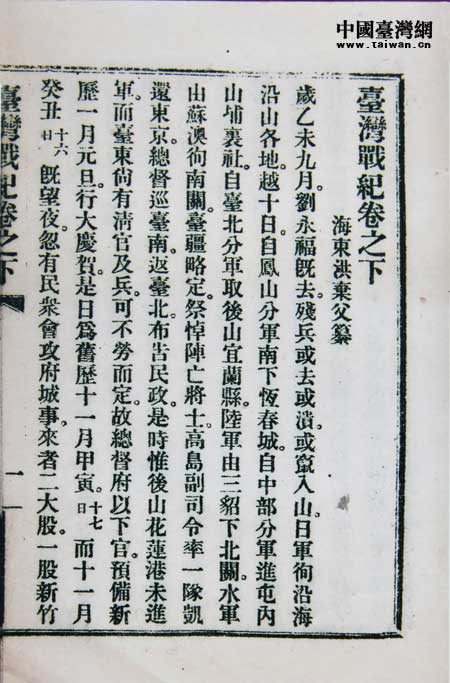 中國臺灣網
www.taiwan.cn
臺灣戰紀卷之下
海東洪棄父纂
歲乙未九月。劉永福旣去。殘兵或去或潰。或竄入山。日軍徇沿海
沿山各地。越十日。自鳳山分軍南下恆春城。自中部分軍進屯內
山埔裏社。自臺北分軍取後山宜蘭縣。陸軍由三貂下北關。水軍
由蘇澳徇南關。臺疆略定。祭悼陣亡將士。高島副司令率一隊凱
還東京。總督巡臺南。返臺北。布吿民政。是時惟後山花蓮港未進
軍。而臺東尙有淸官及兵。可不勞而定。故總督府以下官。預備新
歷一月元旦。行大慶賀。是日爲舊歷十一月甲寅。十七日而十一月
癸丑十六日旣望夜。忽有民衆會攻府城事。來者二大股。一股新竹
臺灣戰紀卷之下
一